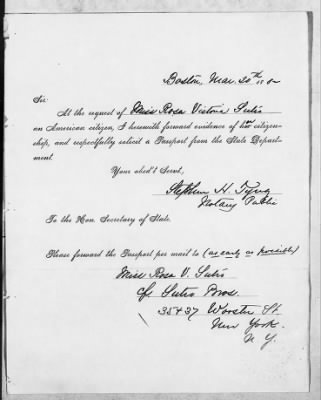 Boston, Mar. 20th 188-
Sir
At the request of Miss Rosa Victoria Sutro
an American citizen, I herewith forward evidence of her citizen-
ship, and respectfully solicit a Passport from the State Depart-
ment.
Your obed't Servt,
Stephen H. Tyng
Notary Public
To the Hon. Secretary of State.
Please forward the Passport per mail to (as early as possible)
Miss Rosa V. Sutro
c/o Sutro Bros.
35 & 37 Wooster St
New York.
N. Y.